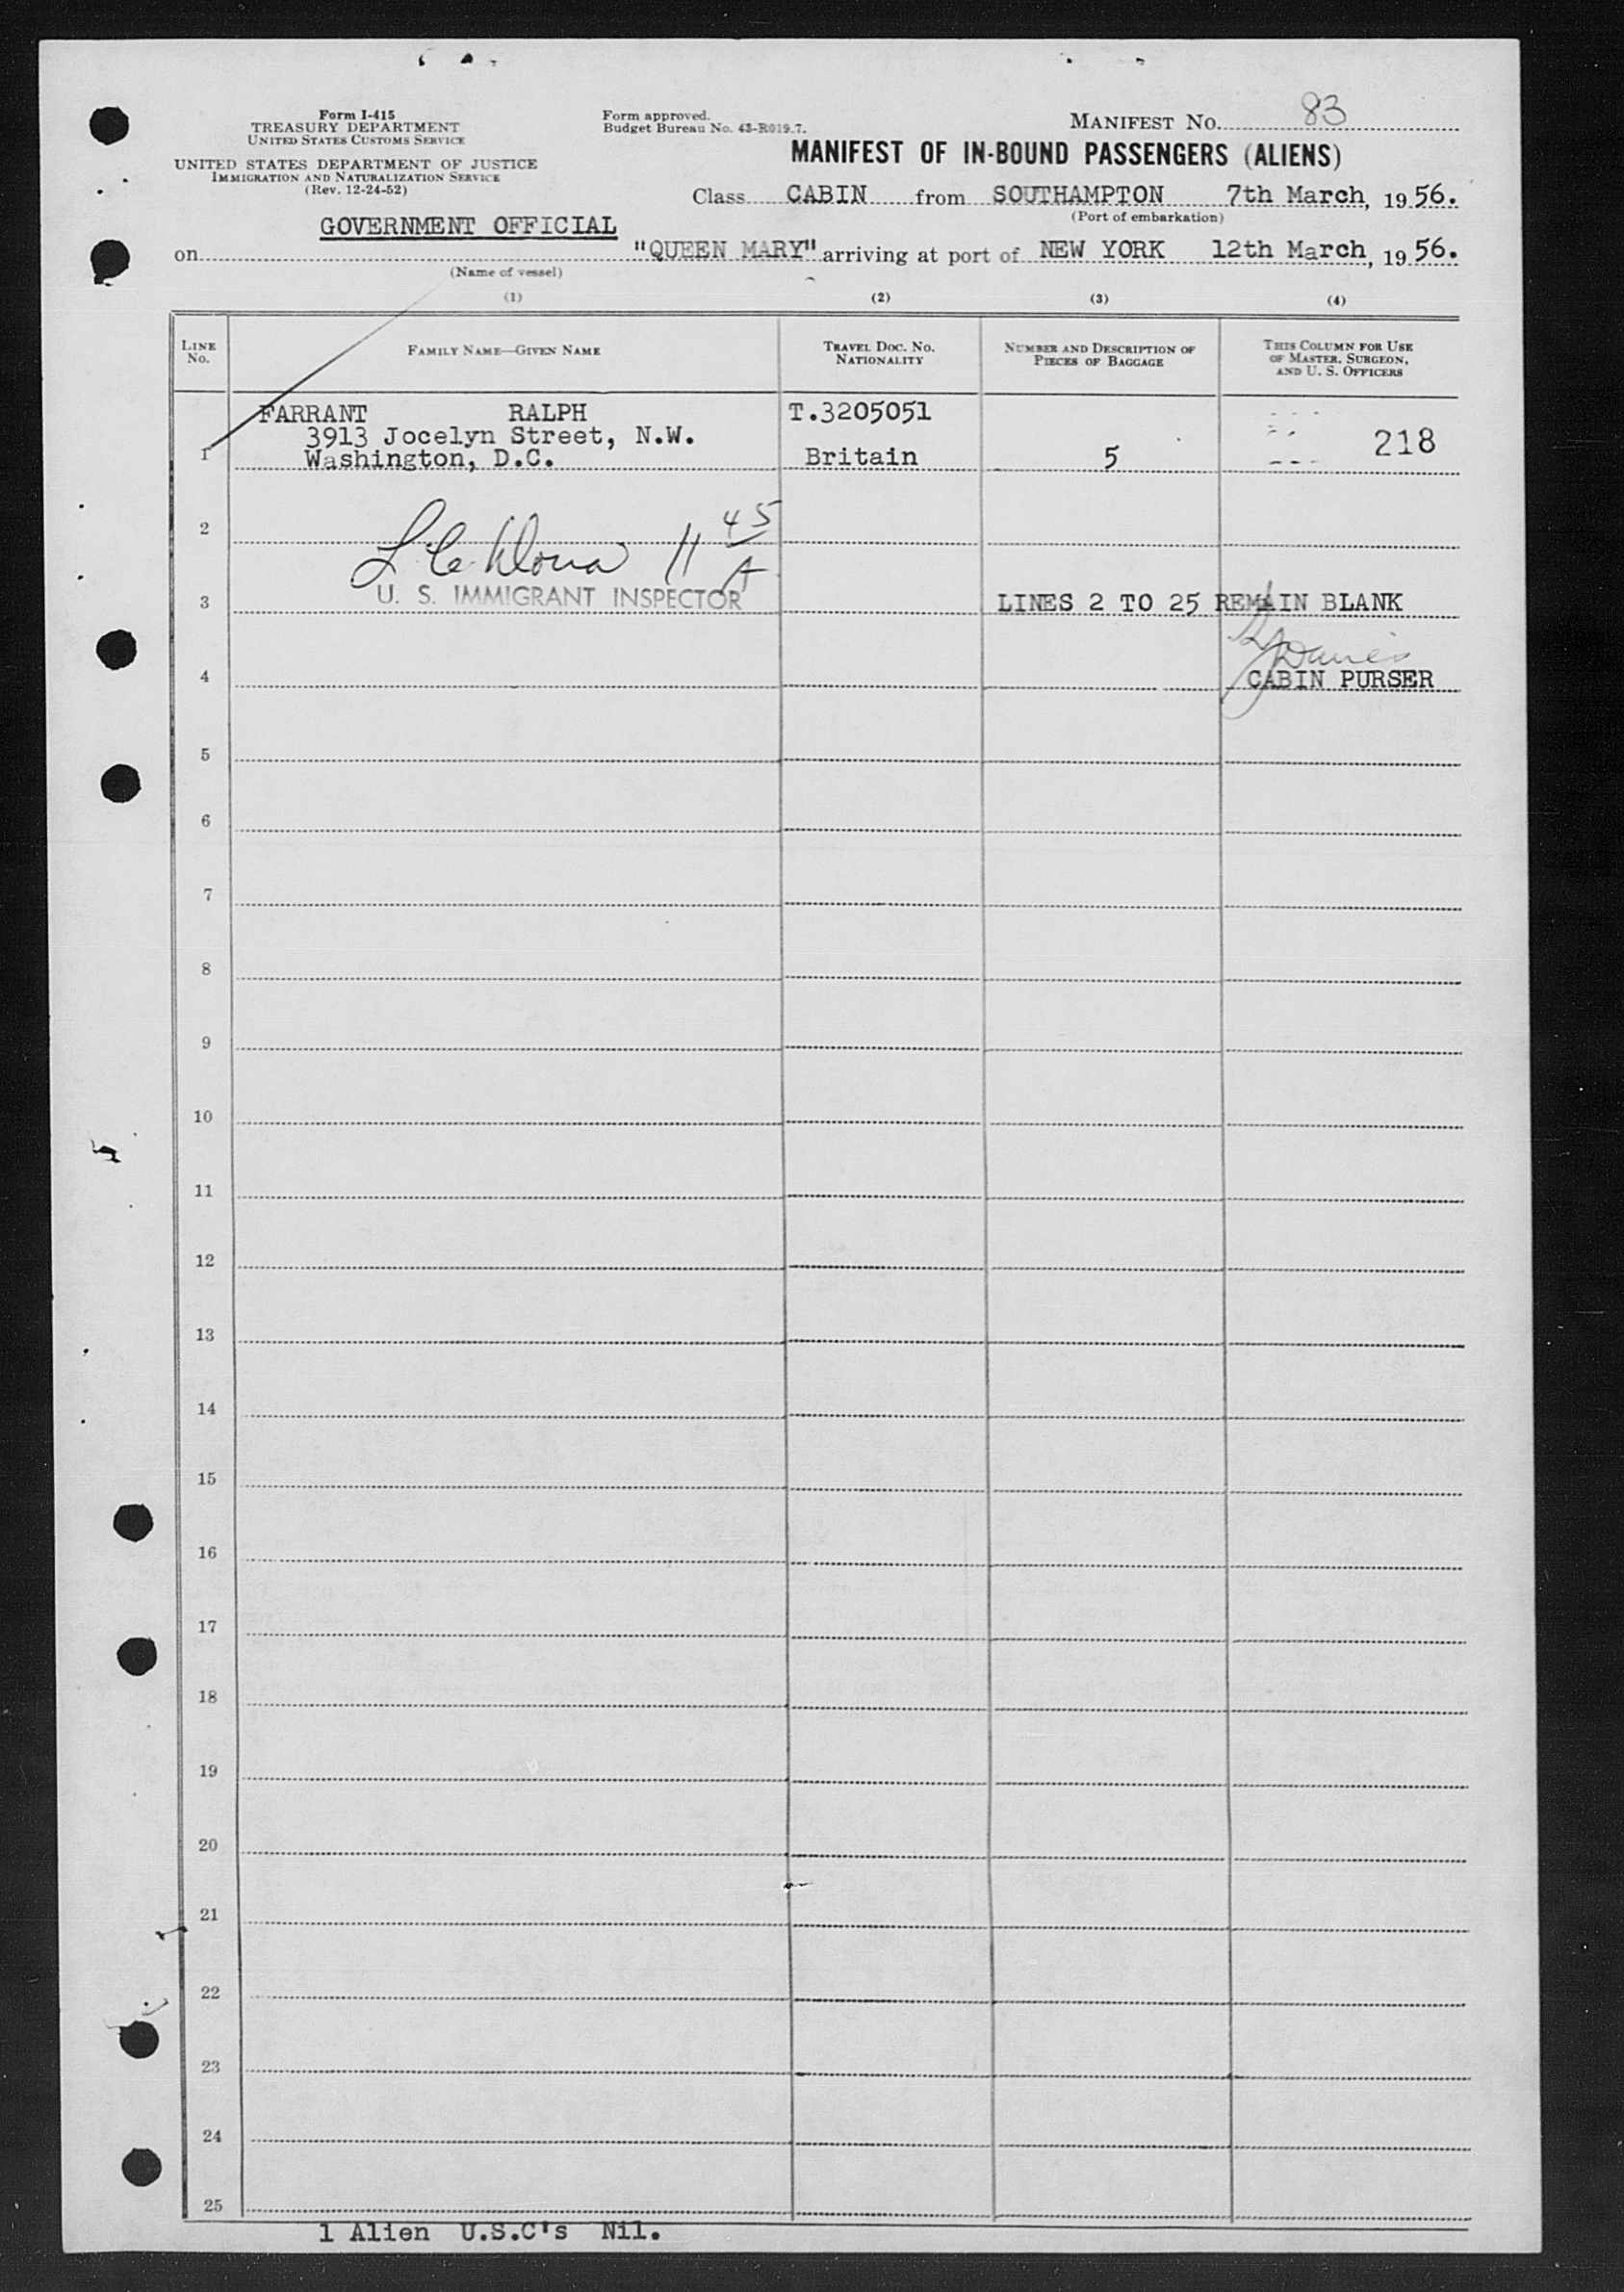 Form I-415
TREASURY DEPARTMENT
UNITED STATES CUSTOMS SERVICE
UNITED STATES DEPARTMENT OF JUSTICE
IMMIGRATION AND NATURALIZATION SERVICE
(Rev. 12-24-52)
Form approved.
Budget Bureau No. 43-R019.7.
MANIFEST NO. 83
MANIFEST OF IN-BOUND PASSENGERS (ALIENS)
Class CABIN from SOUTHAMPTON 7th March, 1956.
(Port of embarkation)
GOVERNMENT OFFICIAL
on "QUEEN MARY" arriving at port of NEW YORK 12th March, 1956.
(Name of vessel)
(1) (2) (3) (4)
LINE NO. FAMILY NAME—GIVEN NAME TRAVEL DOC. NO. NATIONALITY NUMBER AND DESCRIPTION OF PIECES OF BAGGAGE THIS COLUMN FOR USE OF MASTER, SURGEON, AND U. S. OFFICERS
FARRANT RALPH T.3205051
3913 Jocelyn Street, N.W. 218
1 Washington, D.C. Britain 5
2
11 45/A
3 U. S. IMMIGRANT INSPECTOR LINES 2 TO 25 REMAIN BLANK
Davies
4 CABIN PURSER
5
6
7
8
9
10
11
12
13
14
15
16
17
18
19
20
21
22
23
24
25
1 Alien U.S.C's Nil.